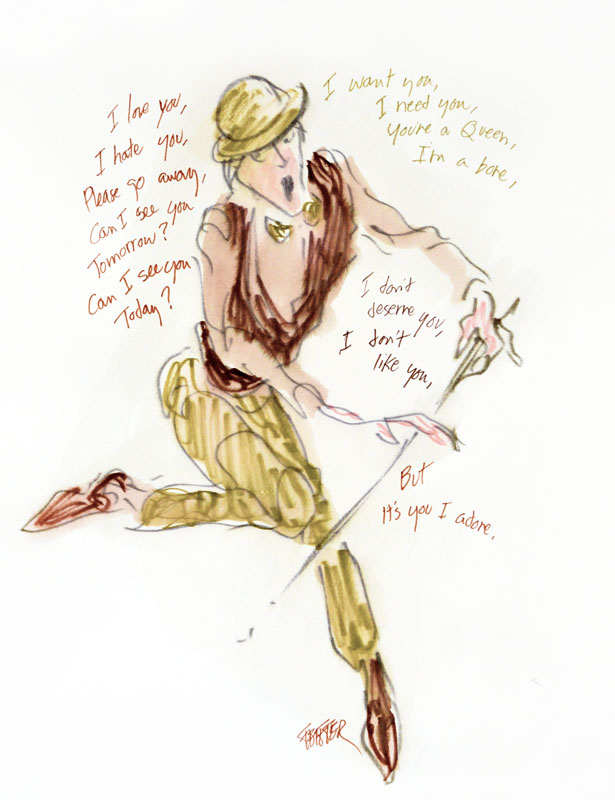 I love you,
I hate you,
Please go away,
Can I see you
Tomorrow?
Can I see you
Today?
I want you,
I need you,
You're a Queen,
I'm a bore,
I don't
deserve you,
I don't
like you,
But
it's you I adore.
FEIFFER